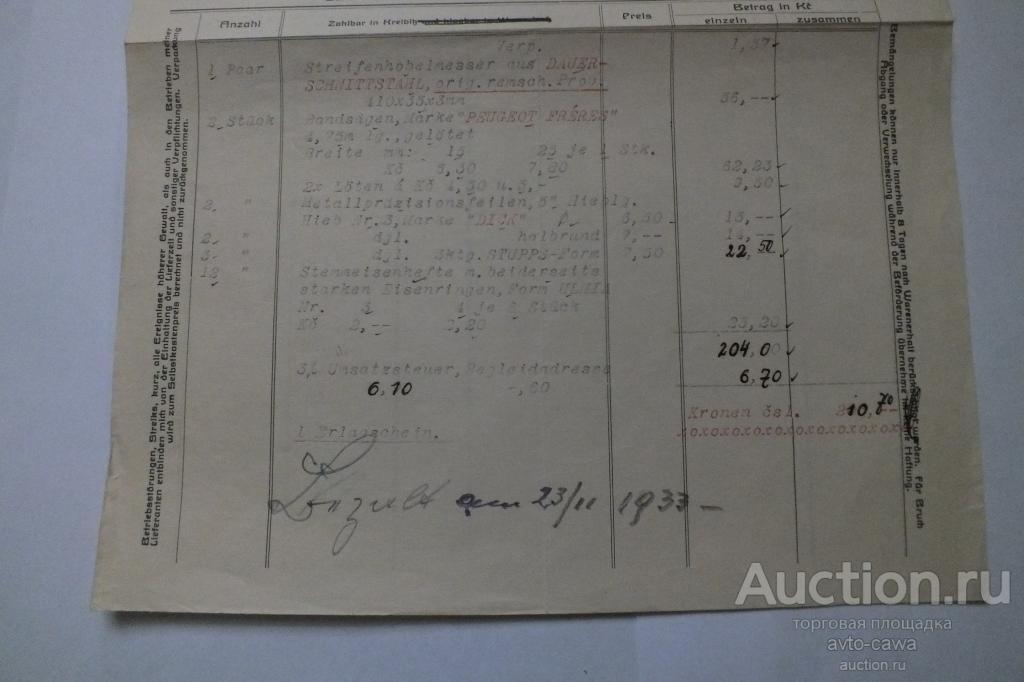 Anzahl Zahlbar in Kreibih Preis Betrag in Kč
einzeln zusammen
Verp. 1,37
1 Paar Streifenhobelmesser aus DAUER-
SCHNITTSTAHL, orig. remsch. Prov.
410x35x3mm 56,--
2 Stück Bandsägen, Marke "PEUGEOT FRÉRES"
4,75m lg., gelötet
Breite mm: 15 25 je 1 Stk.
Kč 5,50 7,60 62,23
2x Löten á Kč 4,50 u. 5,- 9,50
2 " Metallpräzisionsfeilen, 5"
Hieb Nr. 3, Marke "DICK" 6,50 13,--
2 " dgl. halbrund 7,-- 14,--
3 " dgl. 3ktg. STUPPS-Form 7,50 22,50
12 " Stemmeisenhefte m. beiderseits
starken Eisenringen, Form ULMIA
Nr. 3 4 je Stück
Kč 2,-- 2,20 23,20
204,00
3% Umsatzsteuer, Begleidadresse 6,70
6,10 -,60
Kronen čsl. 210,70
1 Erlagschein. xoxoxoxoxoxoxoxoxoxoxo
Bezahlt am 23/11 1933 -
Betriebsstörungen, Streiks, kurz, alle Ereignisse höherer Gewalt, als auch in den Betrieben meiner
Lieferanten entbinden mich von der Einhaltung der Lieferzeit und sonstiger Verpflichtungen. Verpackung
wird zum Selbstkostenpreis berechnet und nicht zurückgenommen.
Bemängelungen können nur innerhalb 8 Tagen nach Warenerhalt berücksichtigt werden. Für Bruch
Abgang oder Verwechselung während der Beförderung übernehme ich keine Haftung.
Auction.ru
торговая площадка
avto-cawa
auction.ru